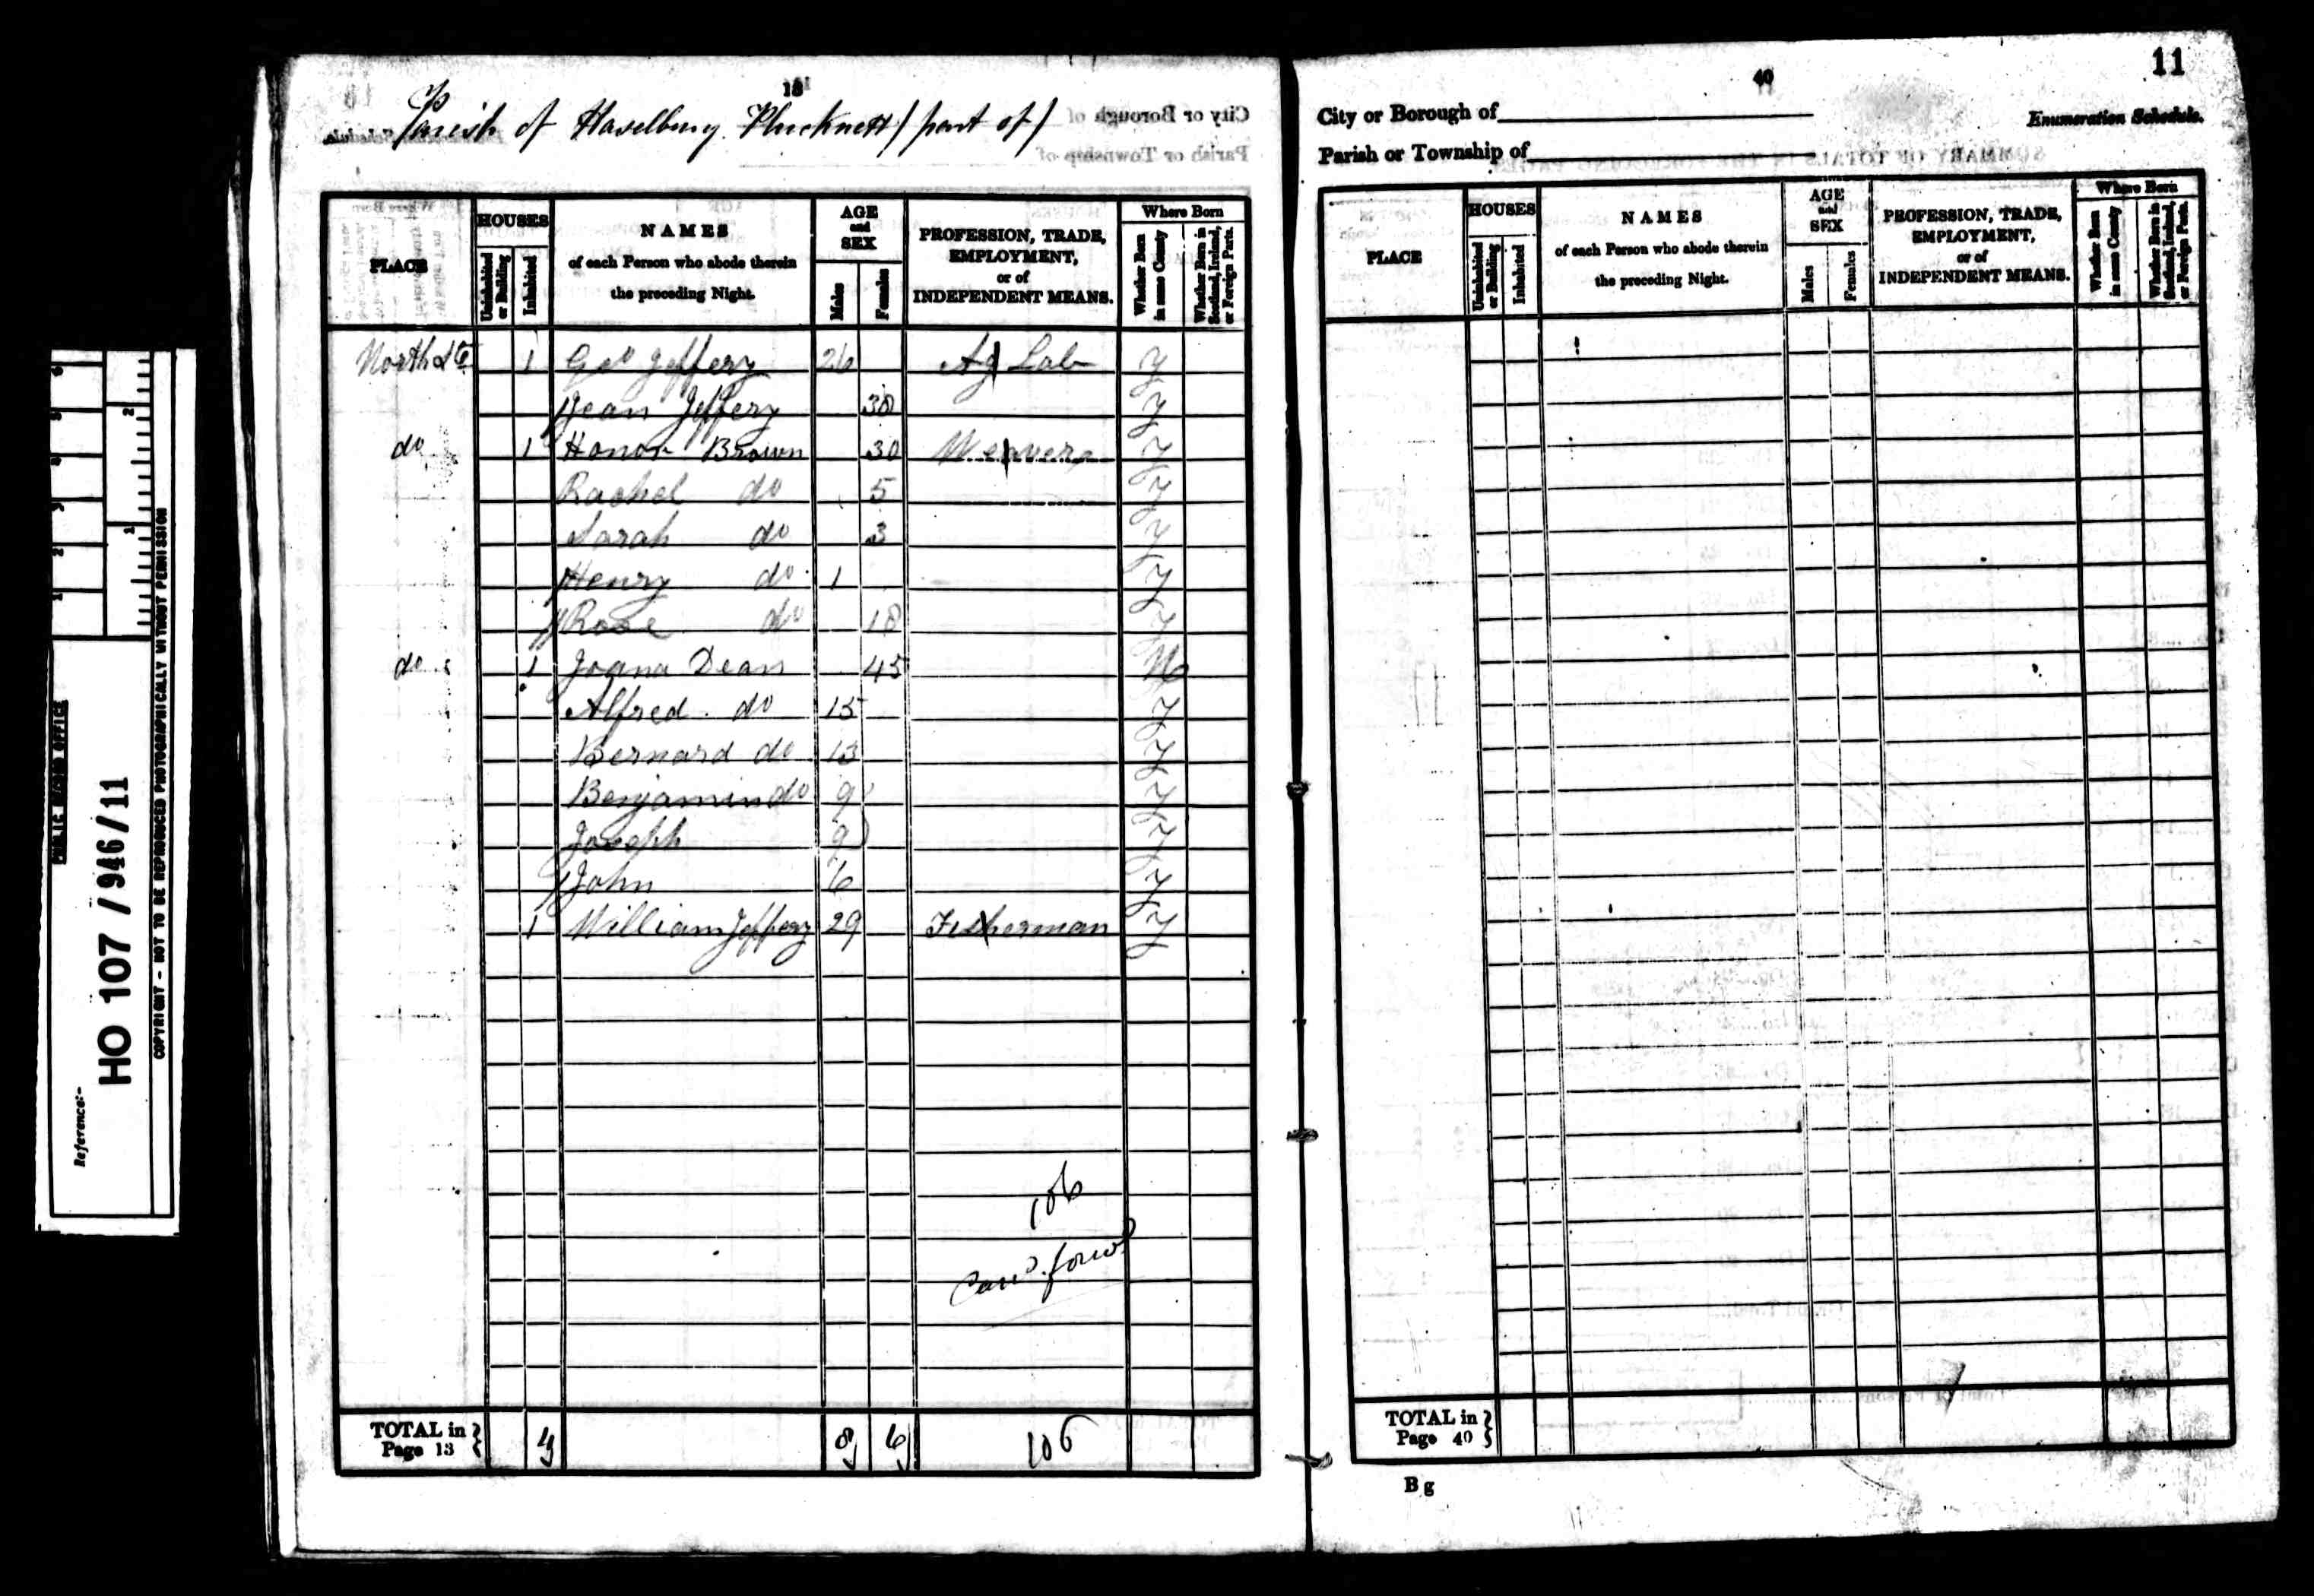 PUBLIC RECORD OFFICE
Reference:-
HO 107 / 946/11
COPYRIGHT - NOT TO BE REPRODUCED PHOTOGRAPHICALLY WITHOUT PERMISSION
Parish of Haselbury Plucknett / part of /
PLACE
HOUSES
Uninhabited or Building
Inhabited
NAMES
of each Person who abode therein
the preceding Night.
AGE
and
SEX
Males
Females
PROFESSION, TRADE,
EMPLOYMENT,
or of
INDEPENDENT MEANS.
Where Born
Whether Born in same County
Whether Born in Scotland, Ireland, or Foreign Parts.
North St 1 Geo Jeffery 26 Ag Lab Y
Jean Jeffery 30 Y
do 1 Honor Brown 30 Weaver Y
Rachel do 5 Y
Sarah do 3 Y
Henry do 1 Y
Rose do 18 Y
do 1 Joana Dean 45 N
Alfred do 15 Y
Bernard do 13 Y
Benjamin do 9 Y
Joseph 9 Y
John 6 Y
1 William Jeffery 29 Fisherman Y
106
Card. forwd
TOTAL in
Page 13
4 8 6 106
40
11
City or Borough of
Enumeration Schedule.
Parish or Township of
PLACE
HOUSES
Uninhabited or Building
Inhabited
NAMES
of each Person who abode therein
the preceding Night.
AGE
and
SEX
Males
Females
PROFESSION, TRADE,
EMPLOYMENT,
or of
INDEPENDENT MEANS.
Where Born
Whether Born in same County
Whether Born in Scotland, Ireland, or Foreign Parts.
TOTAL in
Page 40
B g